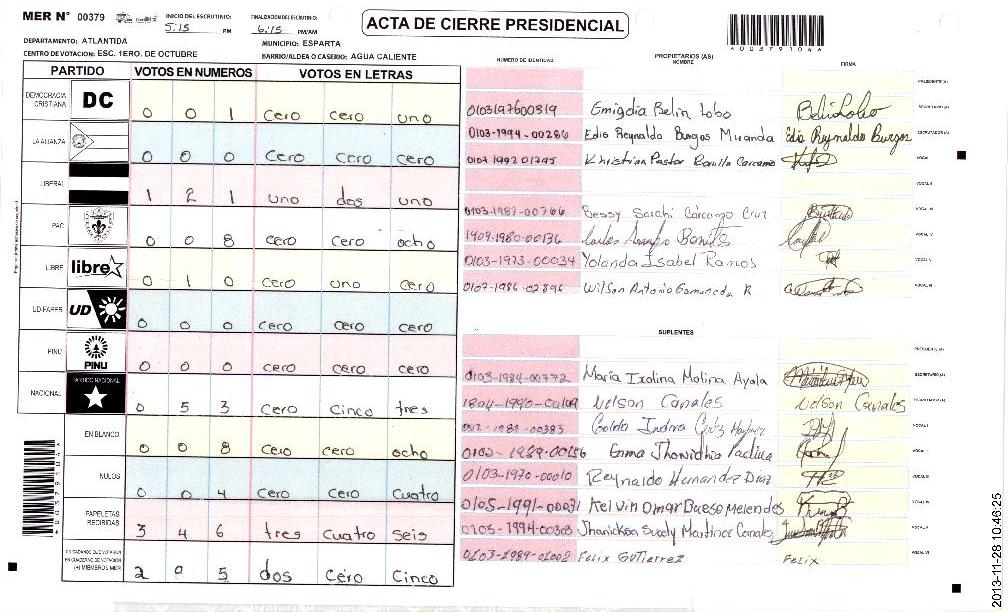 MER N° 00379
INICIO DEL ESCRUTINIO: 5:15 PM
FINALIZACION DEL ESCRUTINIO: 6:15 PM/AM
ACTA DE CIERRE PRESIDENCIAL
A00379104A
DEPARTAMENTO: ATLANTIDA
MUNICIPIO: ESPARTA
CENTRO DE VOTACION: ESC. 1ERO. DE OCTUBRE
BARRIO/ALDEA O CASERIO: AGUA CALIENTE
PARTIDO VOTOS EN NUMEROS VOTOS EN LETRAS
DEMOCRACIA CRISTIANA DC 0 0 1 cero cero uno
LA ALIANZA 0 0 0 cero cero cero
LIBERAL 1 2 1 uno dos uno
PAC 0 0 8 cero cero ocho
LIBRE libre 0 1 0 cero uno cero
UD-FAPER UD 0 0 0 cero cero cero
PINU PINU 0 0 0 cero cero cero
NACIONAL PARTIDO NACIONAL 0 5 3 cero cinco tres
EN BLANCO 0 0 8 cero cero ocho
NULOS 0 0 4 cero cero cuatro
PAPELETAS RECIBIDAS 3 4 6 tres cuatro seis
CIUDADANOS QUE VOTARON EN CUADERNO DE VOTACION (+) MIEMBROS MER 2 0 5 dos cero cinco
NUMERO DE IDENTIDAD PROPIETARIOS (AS) NOMBRE FIRMA
PRESIDENTE (A)
0103197600319 Emigdia Belin Lobo Beli Lobo SECRETARIO (A)
0103-1994-00286 Edis Reynaldo Burgos Miranda Edis Reynaldo Burgos ESCRUTADOR (A)
0107 1992 01795 Khristian Pastor Bonilla Carcamo VOCAL I
VOCAL II
0103-1987-00766 Bessy Sarahi Cárcamo Cruz VOCAL III
1409-1980-00136 Carlos Bonilla VOCAL IV
0103-1973-00034 Yolanda Isabel Ramos VOCAL V
0107-1986-02896 Wilson Antonio R VOCAL VI
SUPLENTES
PRESIDENTE (A)
0103-1984-00772 Maria Ixolina Molina Ayala SECRETARIO (A)
1804-1990- Nelson Canales Nelson Canales ESCRUTADOR (A)
1989-00383 Indira VOCAL I
Emma VOCAL II
0103-1970-00010 Reynaldo Hernandez Diaz VOCAL III
0105-1991-00031 Kelvin Omar Bueso Melendes VOCAL IV
0103-1994-00303 Suely Martinez Canales VOCAL V
0103-1989-01002 Felix Gutierrez Felix VOCAL VI
A00379104A
2013-11-28 10:46:25